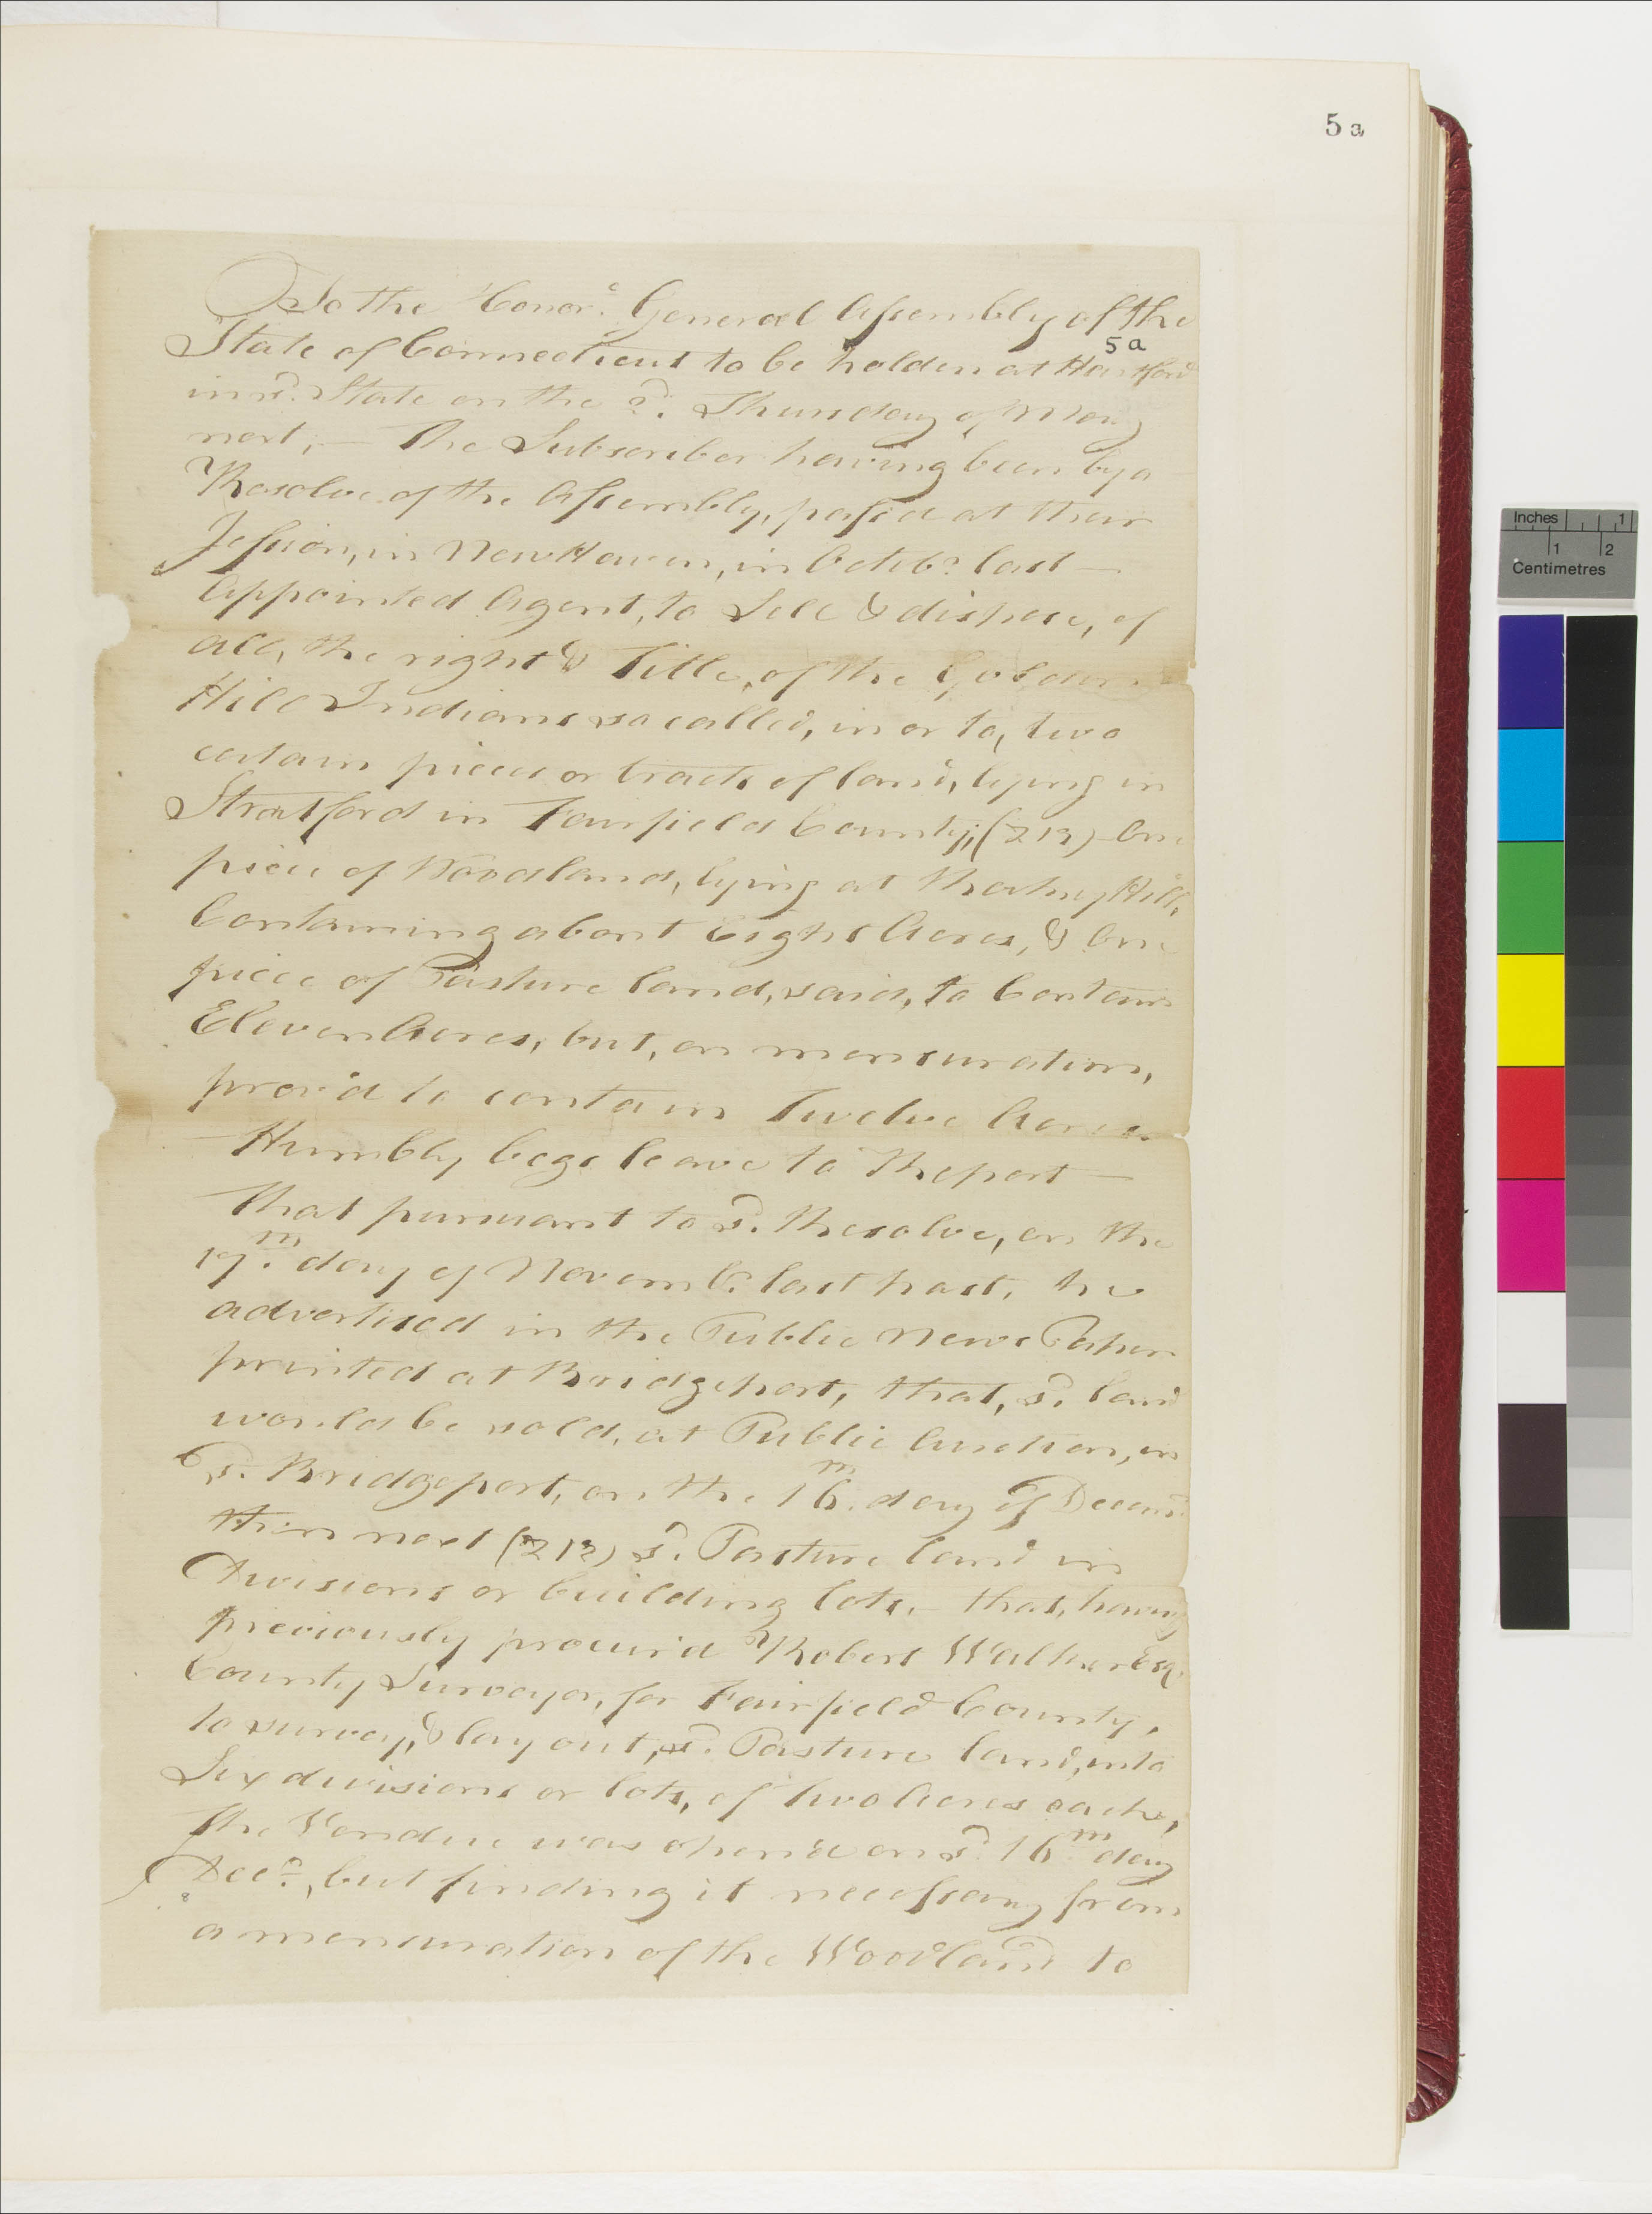 5a
To the Honore. General Assembly of the
5a
State of Connecticut to be holden at Hartford
in sd. State on the 2d. Thursday of May
next, — The Subscriber having been by a
Resolve of the Assembly, passed at their
Session, in New Haven, in Octobr. last —
Appointed Agent, to Sell & dispose, of
all, the right & Title, of the Golden
Hill Indians so called, in or to, two
certain pieces or tracts of land, lying in
Stratford in Fairfield County, (Viz) One
piece of Woodland, lying at Rocky Hill,
Containing about Eight Acres, & One
piece of Pasture land, said, to Contain
Eleven Acres, but, on mensuration,
prov'd to contain Twelve Acres
— Humbly begs leave to Report —
That pursuant to sd. Resolve, on the
19th. day of Novembr. last past, he
advertised in the Public News Paper
printed at Bridgeport, that, sd. land
would be sold, at Public Auction, in
sd. Bridgeport, on the 16th. day of Decemr.
then next (Viz) sd. Pasture land in
Divisions or building lots, — that, having
previously procur'd Robert Walker Esqr.
County Surveyor, for Fairfield County,
to survey, & lay out, sd. Pasture land, into
Six divisions or lots, of two Acres each,
The Vendue was open'd on sd. 16th day
Decr., but finding it necessary from
a mensuration of the Woodland to
Inches 1
1 2
Centimetres